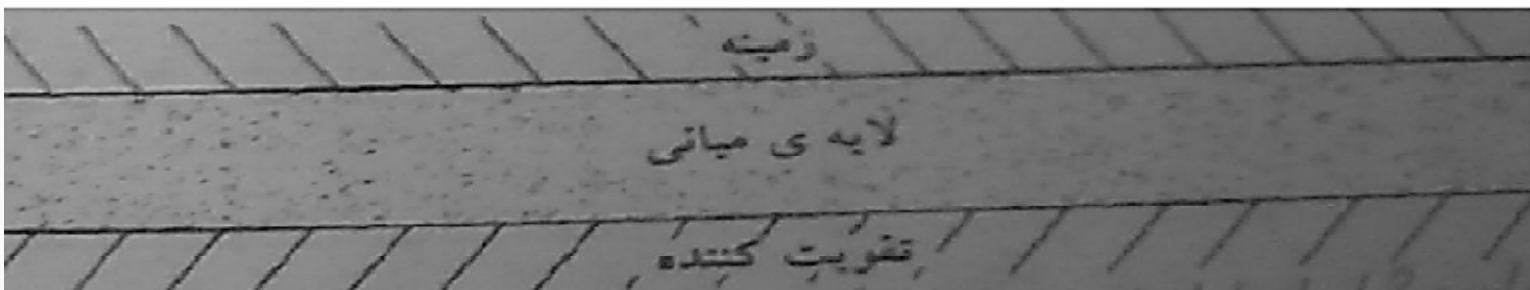 زمینه
لایه ی میانی
تقویت کننده